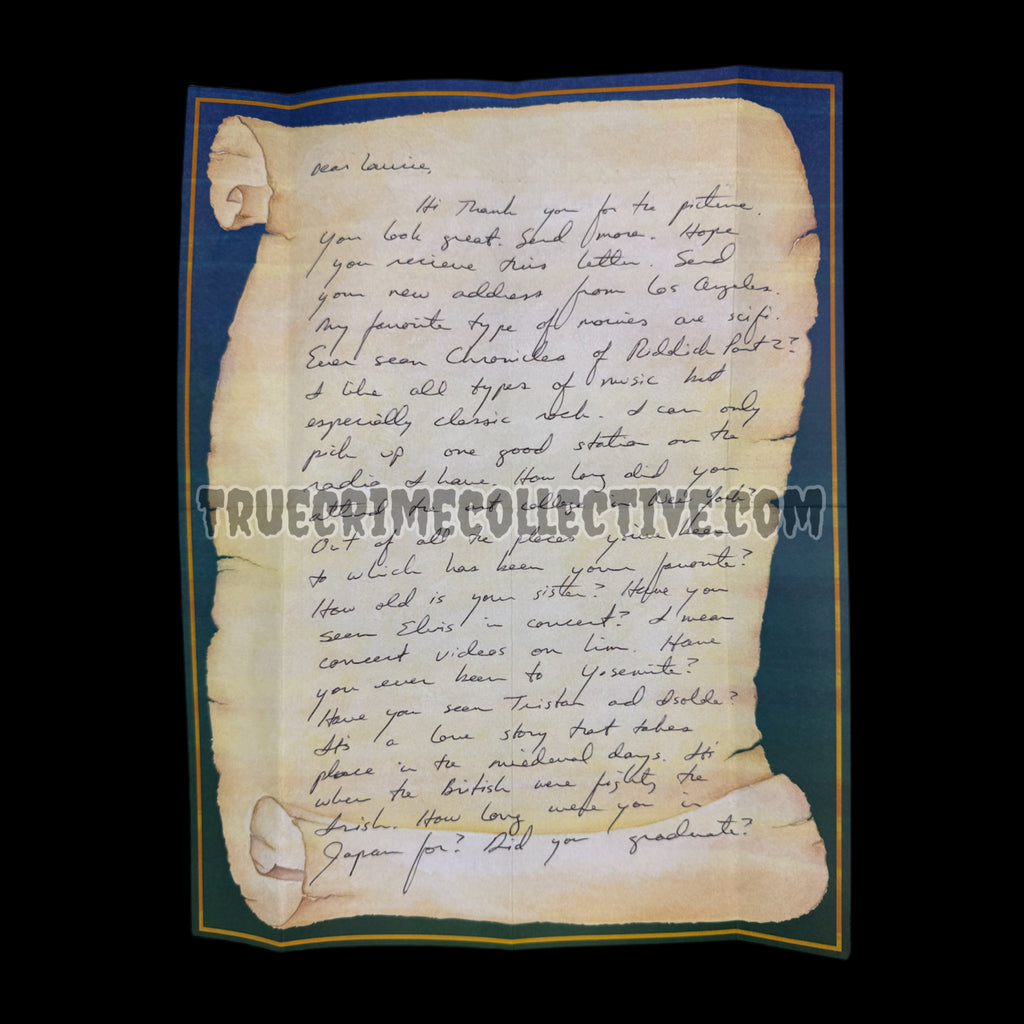 Dear Laurie,
Hi Thank you for the picture.
You look great. Send more. Hope
you recieve this letter. Send
your new address from Los Angeles.
My favorite type of movies are scifi.
Ever seen Chronicles of Riddick Part 2?
I like all types of music but
especially classic rock. I can only
pick up one good station on the
radio I have. How long did you
attend the art college in New York?
TRUECRIMECOLLECTIVE.COM
Out of all the places you've been
to which has been your favorite?
How old is your sister? Have you
seen Elvis in concert? I mean
concert videos on him. Have
you ever been to Yosemite?
Have you seen Tristan ad Isolde?
It's a love story that takes
place in the miedeval days. It's
when the British were fighting the
Irish. How long were you in
Japan for? Did you graduate?